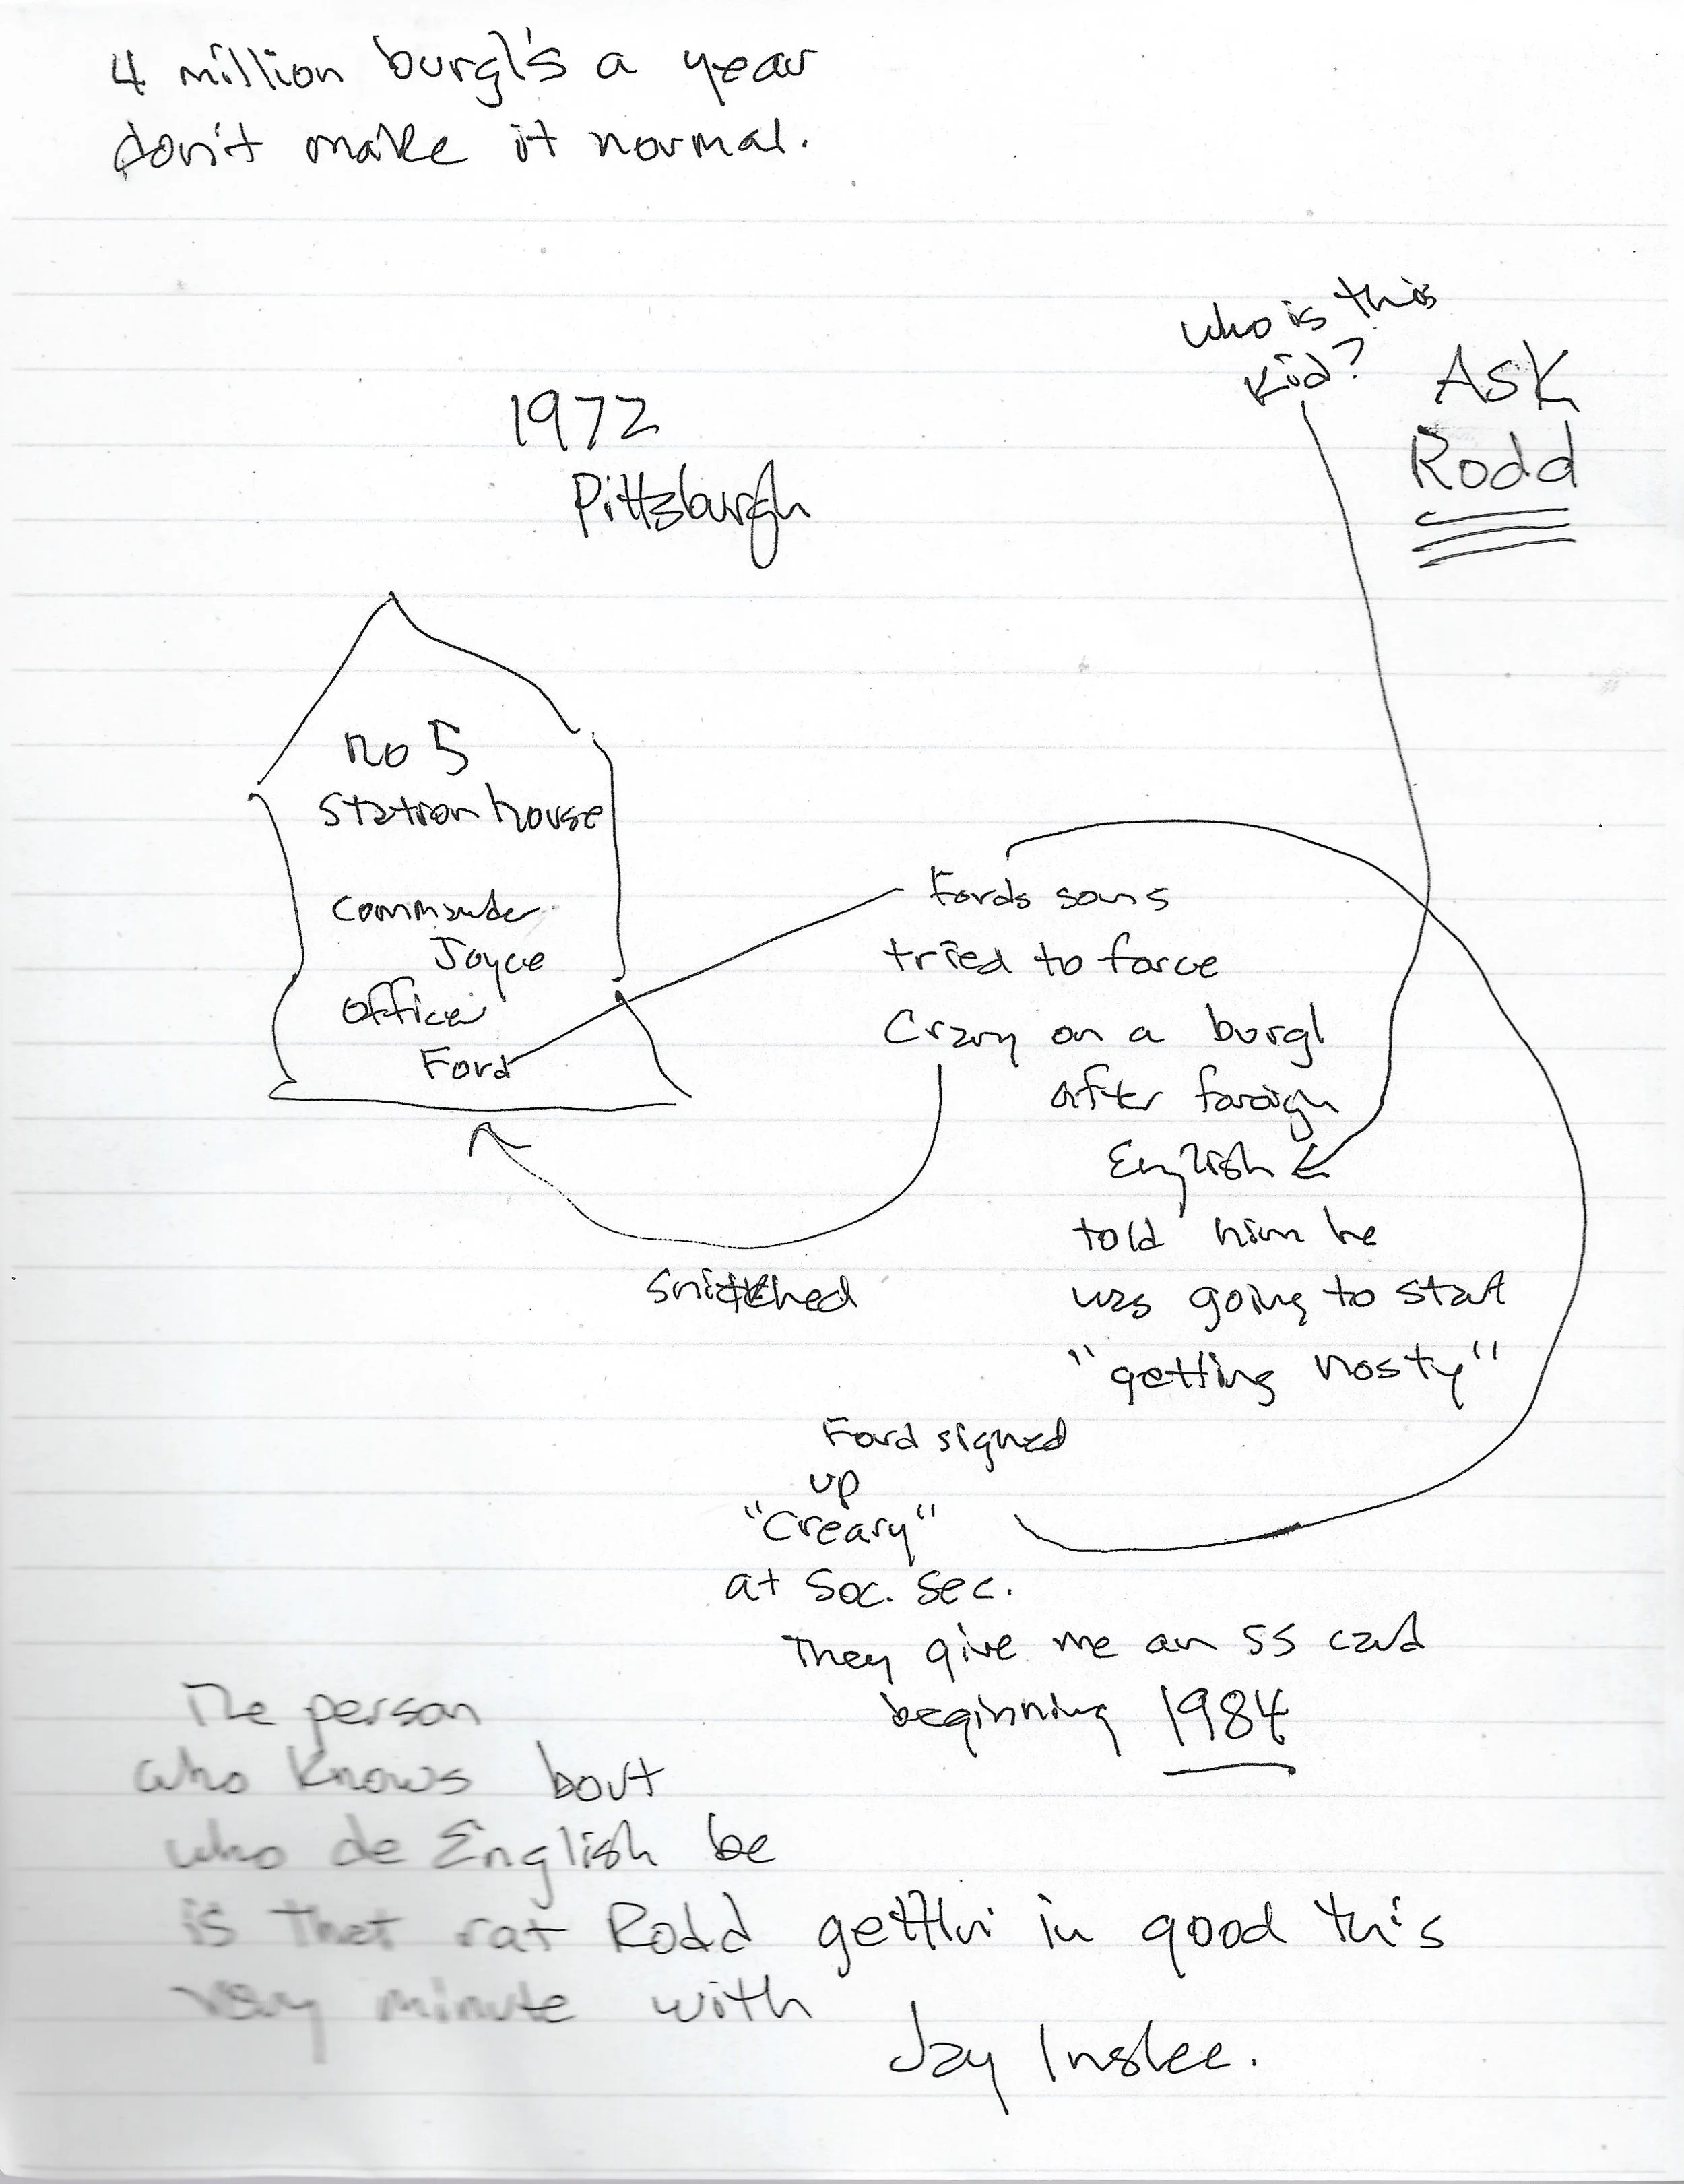 4 million burgl's a year
don't make it normal.
who is this
kid?
Ask
Rodd
1972
Pittsburgh
no 5
station house
Commander
Joyce
Officer
Ford
Fords sons
tried to force
Crary on a burgl
after foreign
English
told him he
was going to start
"getting nasty"
snitched
Ford signed
up
"Creary"
at Soc. Sec.
They give me an SS card
beginning 1984
The person
who knows bout
who de English be
is that rat Rodd gettin' in good this
very minute with
Jay Inslee.